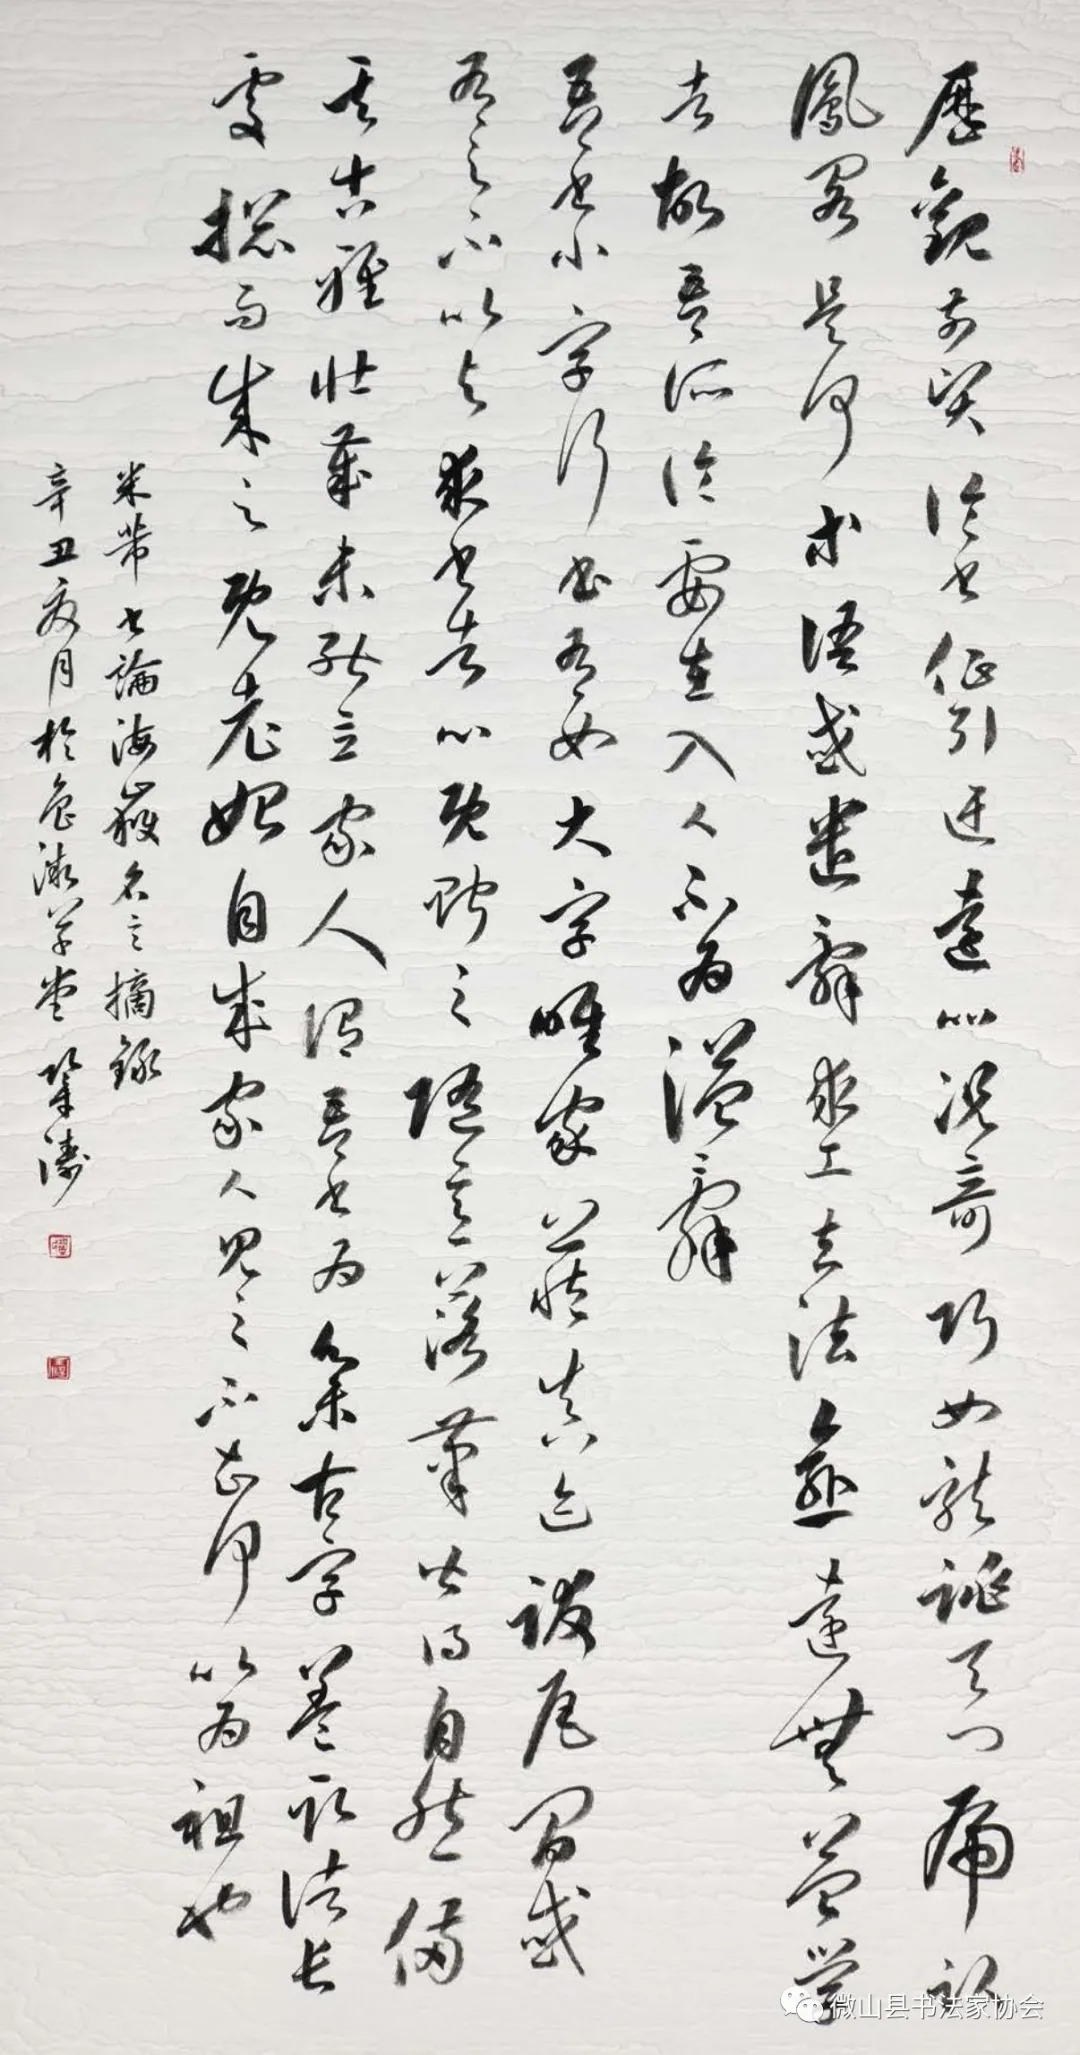 歷觀前賢論書征引迂遠比況奇巧如龍跳天門虎臥
鳳閣是何等語或遣辭求工去法逾遠無益學
者故吾所論要在入人不為溢辭
吾書小字行書有如大字唯家藏真跡跋尾間或
有之不以與求書者心既貯之隨意落筆皆得自然備
其古雅壯歲未能立家人謂吾書為集古字蓋取諸長
處總而成之既老始自成家人見之不知何以為祖也
米芾書論海嶽名言摘錄
辛丑夏月於微草堂
微山县书法家协会